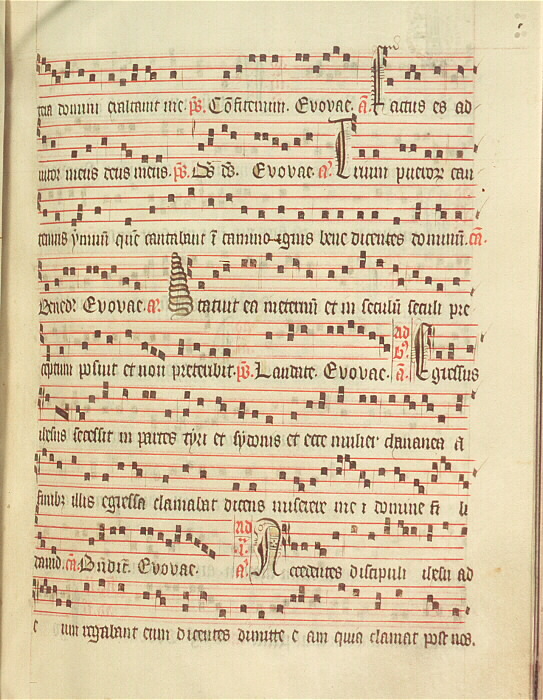 tera domini exaltavit me. ps. Confitemini. Evovae. a. Factus es ad
iutor meus deus meus. ps. Ds ds. Evovae. a. Trium pueror can
temus ymnum quem cantabant i camino ignis bene dicentes dominum. ca.
Bened. Evovae. a. Statuit ea ineternum et in seculum seculi pre
ceptum posuit et non preteribit. ps. Laudate. Evovae. ad b. a. Egressus
ihesus secessit in partes tyri et sydonis et ecce mulier chananea a
finibz illis egressa clamabat dicens miserere me i domine fi li
david. ca. Bndic. Evovae. ad i. a. Accedentes discipuli ihesu ad
e um rogabant eum dicentes dimitte e am quia clamat post nos.